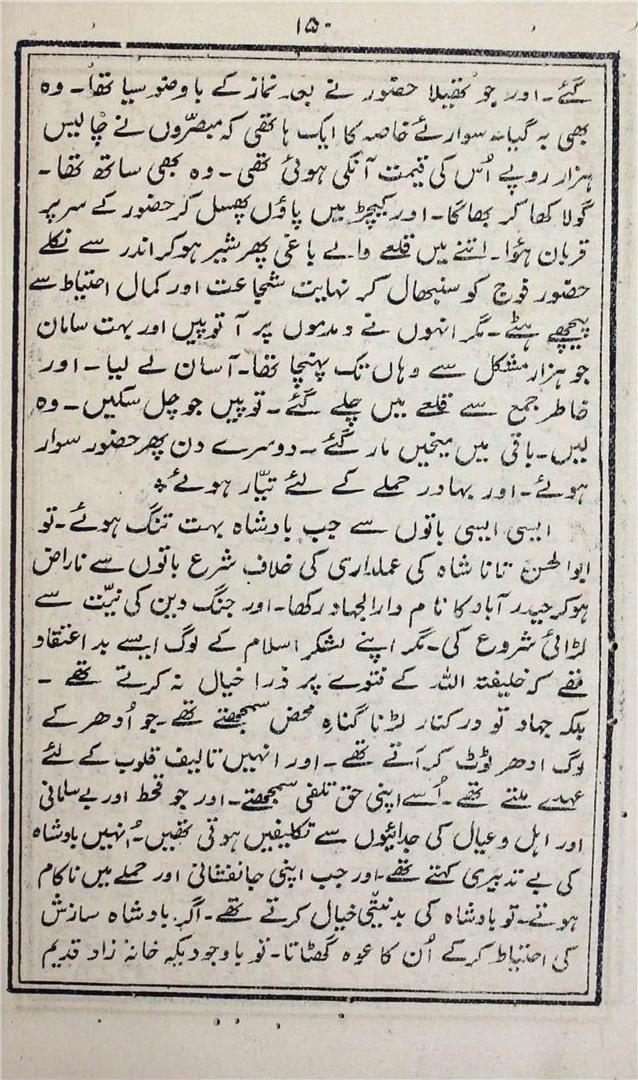 ۱۵۰
گئے۔ اور جو تھیلا حضور نے بعد نماز کے باوضو سیا تھا۔ وہ
بھی بہ گیا۔ سوارئے خاصہ کا ایک ہاتھی کہ مبصّروں نے چالیس
ہزار روپے اُس کی قیمت آنکی ہوئی تھی۔ وہ بھی ساتھ تھا۔
گولا کھا کر بھاگا۔ اور کیچڑ میں پاؤں پھسل کر حضور کے سر پر
قربان ہؤا۔ اتنے میں قلعے والے باغی پھر شیر ہو کر اندر سے نکلے
حضور فوج کو سنبھال کر نہایت شجاعت اور کمال احتیاط سے
پیچھے ہٹے۔ مگر انہوں نے دمدموں پر آ توپیں اور بہت سامان
جو ہزار مشکل سے وہاں تک پہنچا تھا۔ آسان لے لیا۔ اور
خاطر جمع سے قلعے میں چلے گئے۔ توپیں جو چل سکیں۔ وہ
لیں۔ باقی میں میخیں مار گئے۔ دوسرے دن پھر حضور سوار
ہوئے۔ اور بہادر حملے کے لئے تیّار ہوئے۔
ایسی ایسی باتوں سے جب بادشاہ بہت تنگ ہوئے۔ تو
ابوالحسن تانا شاہ کی عملداری کی خلاف شرع باتوں سے ناراض
ہوکر حیدر آباد کا نام دارالجہاد رکھا۔ اور جنگ دین کی نیّت سے
لڑائی شروع کی۔ مگر اپنے لشکر اسلام کے لوگ ایسے بد اعتقاد
تھے کہ خلیفتہ اللہ کے فتوے پر ذرا خیال نہ کرتے تھے۔
بلکہ جہاد تو درکنار لڑنا گناہِ محض سمجھتے تھے۔ جو اُدھر کے
لوگ ادھر ٹوٹ کر آتے تھے۔ اور انہیں تالیف قلوب کے لئے
عہدے ملتے تھے۔ اُسے اپنی حق تلفی سمجھتے۔ اور جو قحط اور بےسامانی
اور اہل و عیال کی جدائیوں سے تکلیفیں ہوتی تھیں۔ اُنہیں بادشاہ
کی بے تدبیری کہتے تھے۔ اور جب اپنی جانفشانی اور حملے میں ناکام
ہوتے۔ تو بادشاہ کی بدنیتی خیال کرتے تھے۔ اگر بادشاہ سازش
کی احتیاط کرکے اُن کا عہدہ گھٹاتا۔ تو باوجودیکہ خانہ زاد قدیم